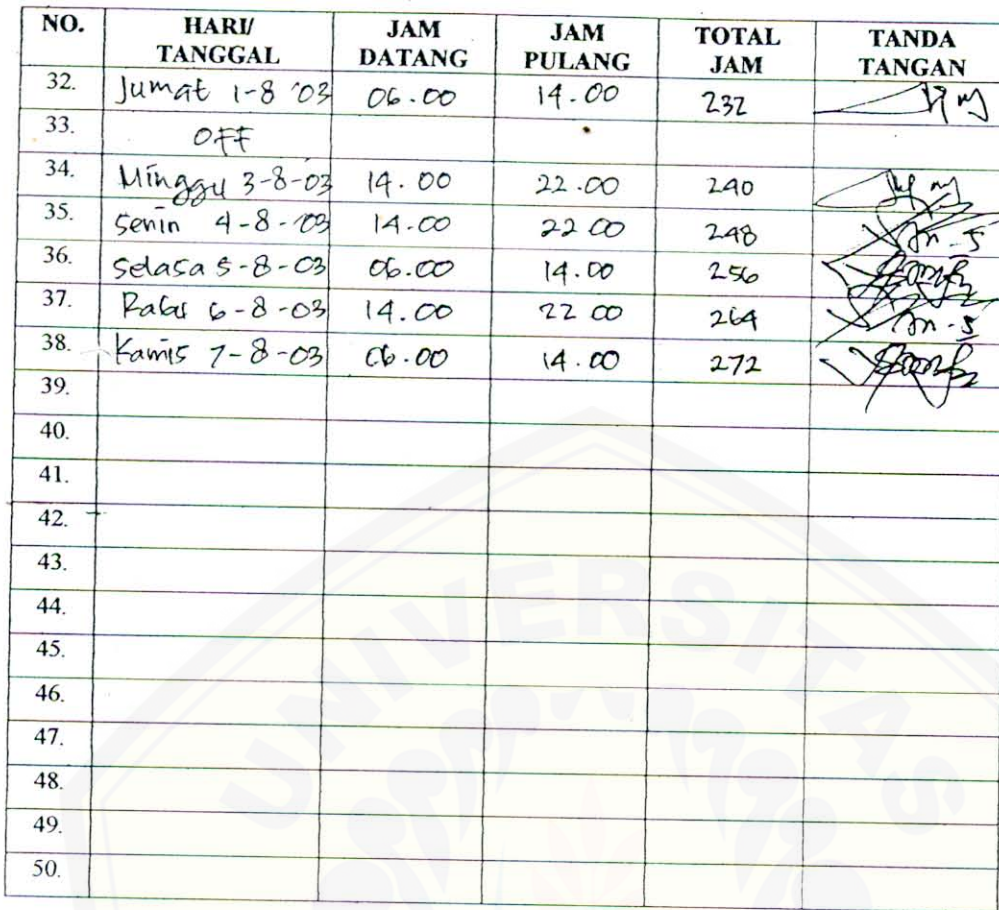 NO. HARI/ TANGGAL JAM DATANG JAM PULANG TOTAL JAM TANDA TANGAN
32. Jumat 1-8 '03 06.00 14.00 232
33. OFF
34. Minggu 3-8-03 14.00 22.00 240
35. Senin 4-8-'03 14.00 22 00 248
36. Selasa 5-8-03 06.00 14.00 256
37. Rabu 6-8-03 14.00 22 00 264
38. Kamis 7-8-03 06.00 14.00 272
39.
40.
41.
42.
43.
44.
45.
46.
47.
48.
49.
50.
UNIVERSITAS